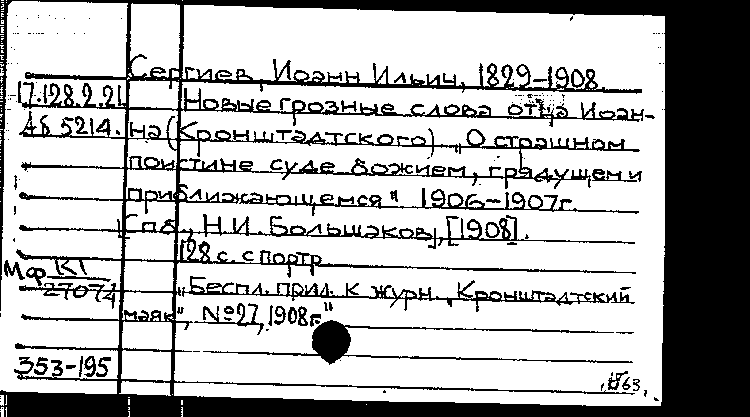 Сергиев, Иоанн Ильич, 1829-1908.
17.128.2.21 Новые грозные слова отца Иоан-
Аб 5214. на (Кронштадтского) „О страшном
поистине суде божием, грядущем и
приближающемся" 1906-1907г.
[Спб., Н.И. Большаков], [1908].
128 с. с портр.
Мф К1
27074
„Беспл. прил. к журн. „Кронштадтский
маяк", №27, 1908г."
353-195
63.